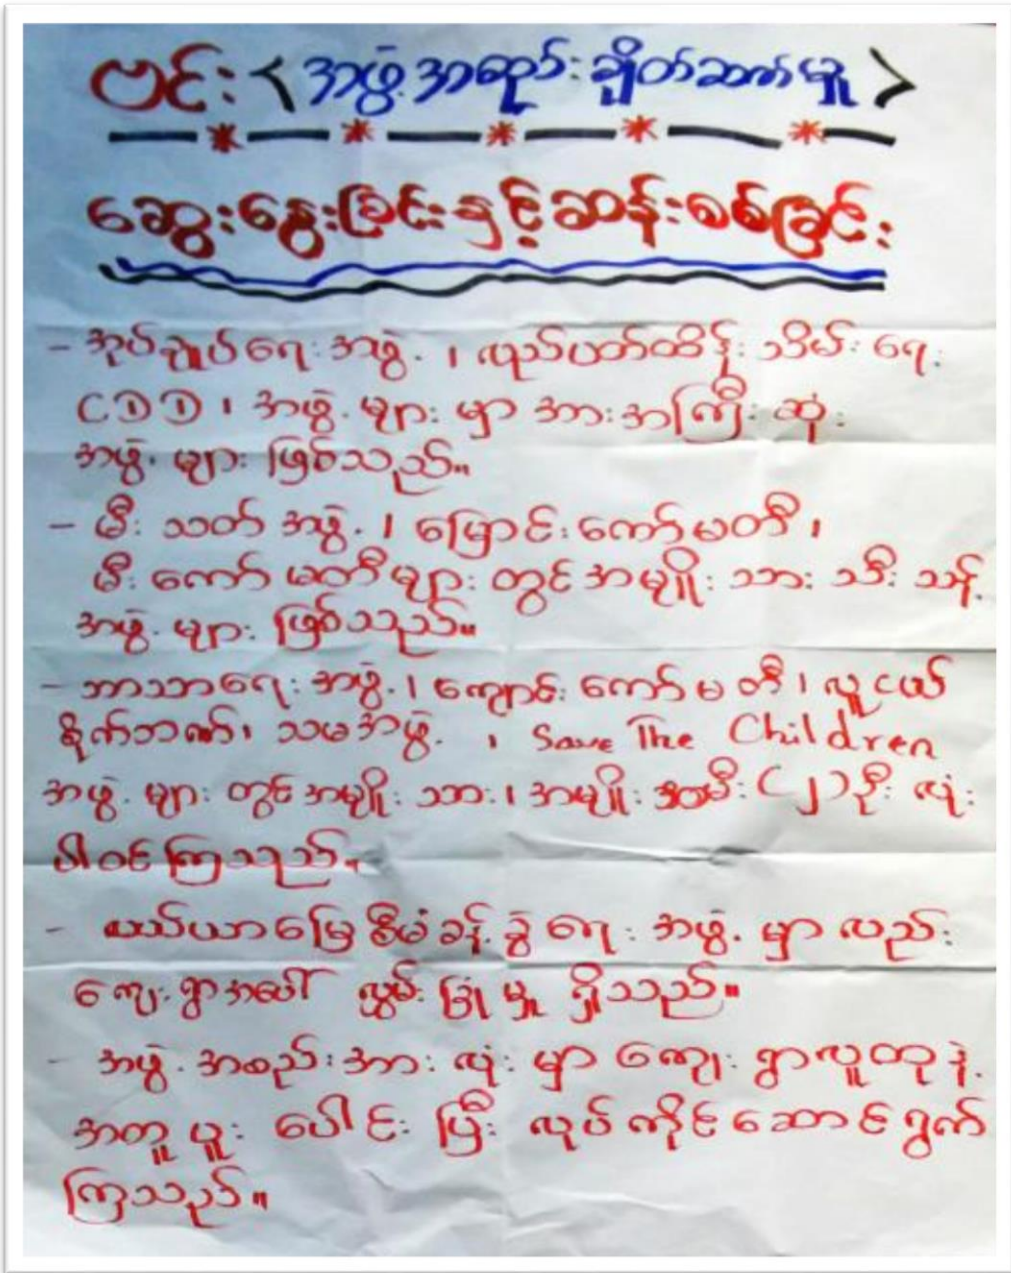 ဗင်း <အဖွဲ့အစည်းချိတ်ဆက်မှု>
ဆွေးနွေးခြင်းနှင့်ဆန်းစစ်ခြင်း
- အုပ်ချုပ်ရေးအဖွဲ့၊ လျှပ်စစ်ထိန်းသိမ်းရေး
CDD၊ အဖွဲ့များမှာ အားအကြီးဆုံး
အဖွဲ့များဖြစ်သည်။
- မီးသတ်အဖွဲ့၊ မြောင်းကော်မတီ၊
မီးကော်မတီများတွင်အမျိုးသားသီးသန့်
အဖွဲ့များဖြစ်သည်။
- ဘာသာရေးအဖွဲ့၊ ကျောင်းကော်မတီ၊ လူငယ်
စိုက်ဘဏ်၊ သမအဖွဲ့၊ Save The Children
အဖွဲ့များတွင်အမျိုးသား၊ အမျိုးသမီး (၂) ဦးလုံး
ပါဝင်ကြသည်။
- လယ်ယာမြေစီမံခန့်ခွဲရေးအဖွဲ့မှာလည်း
ကျေးရွာအပေါ် လွှမ်းခြုံမှုရှိသည်။
- အဖွဲ့အစည်းအားလုံးမှာ ကျေးရွာလူထုနဲ့
အတူပူးပေါင်းပြီး လုပ်ကိုင်ဆောင်ရွက်
ကြသည်။